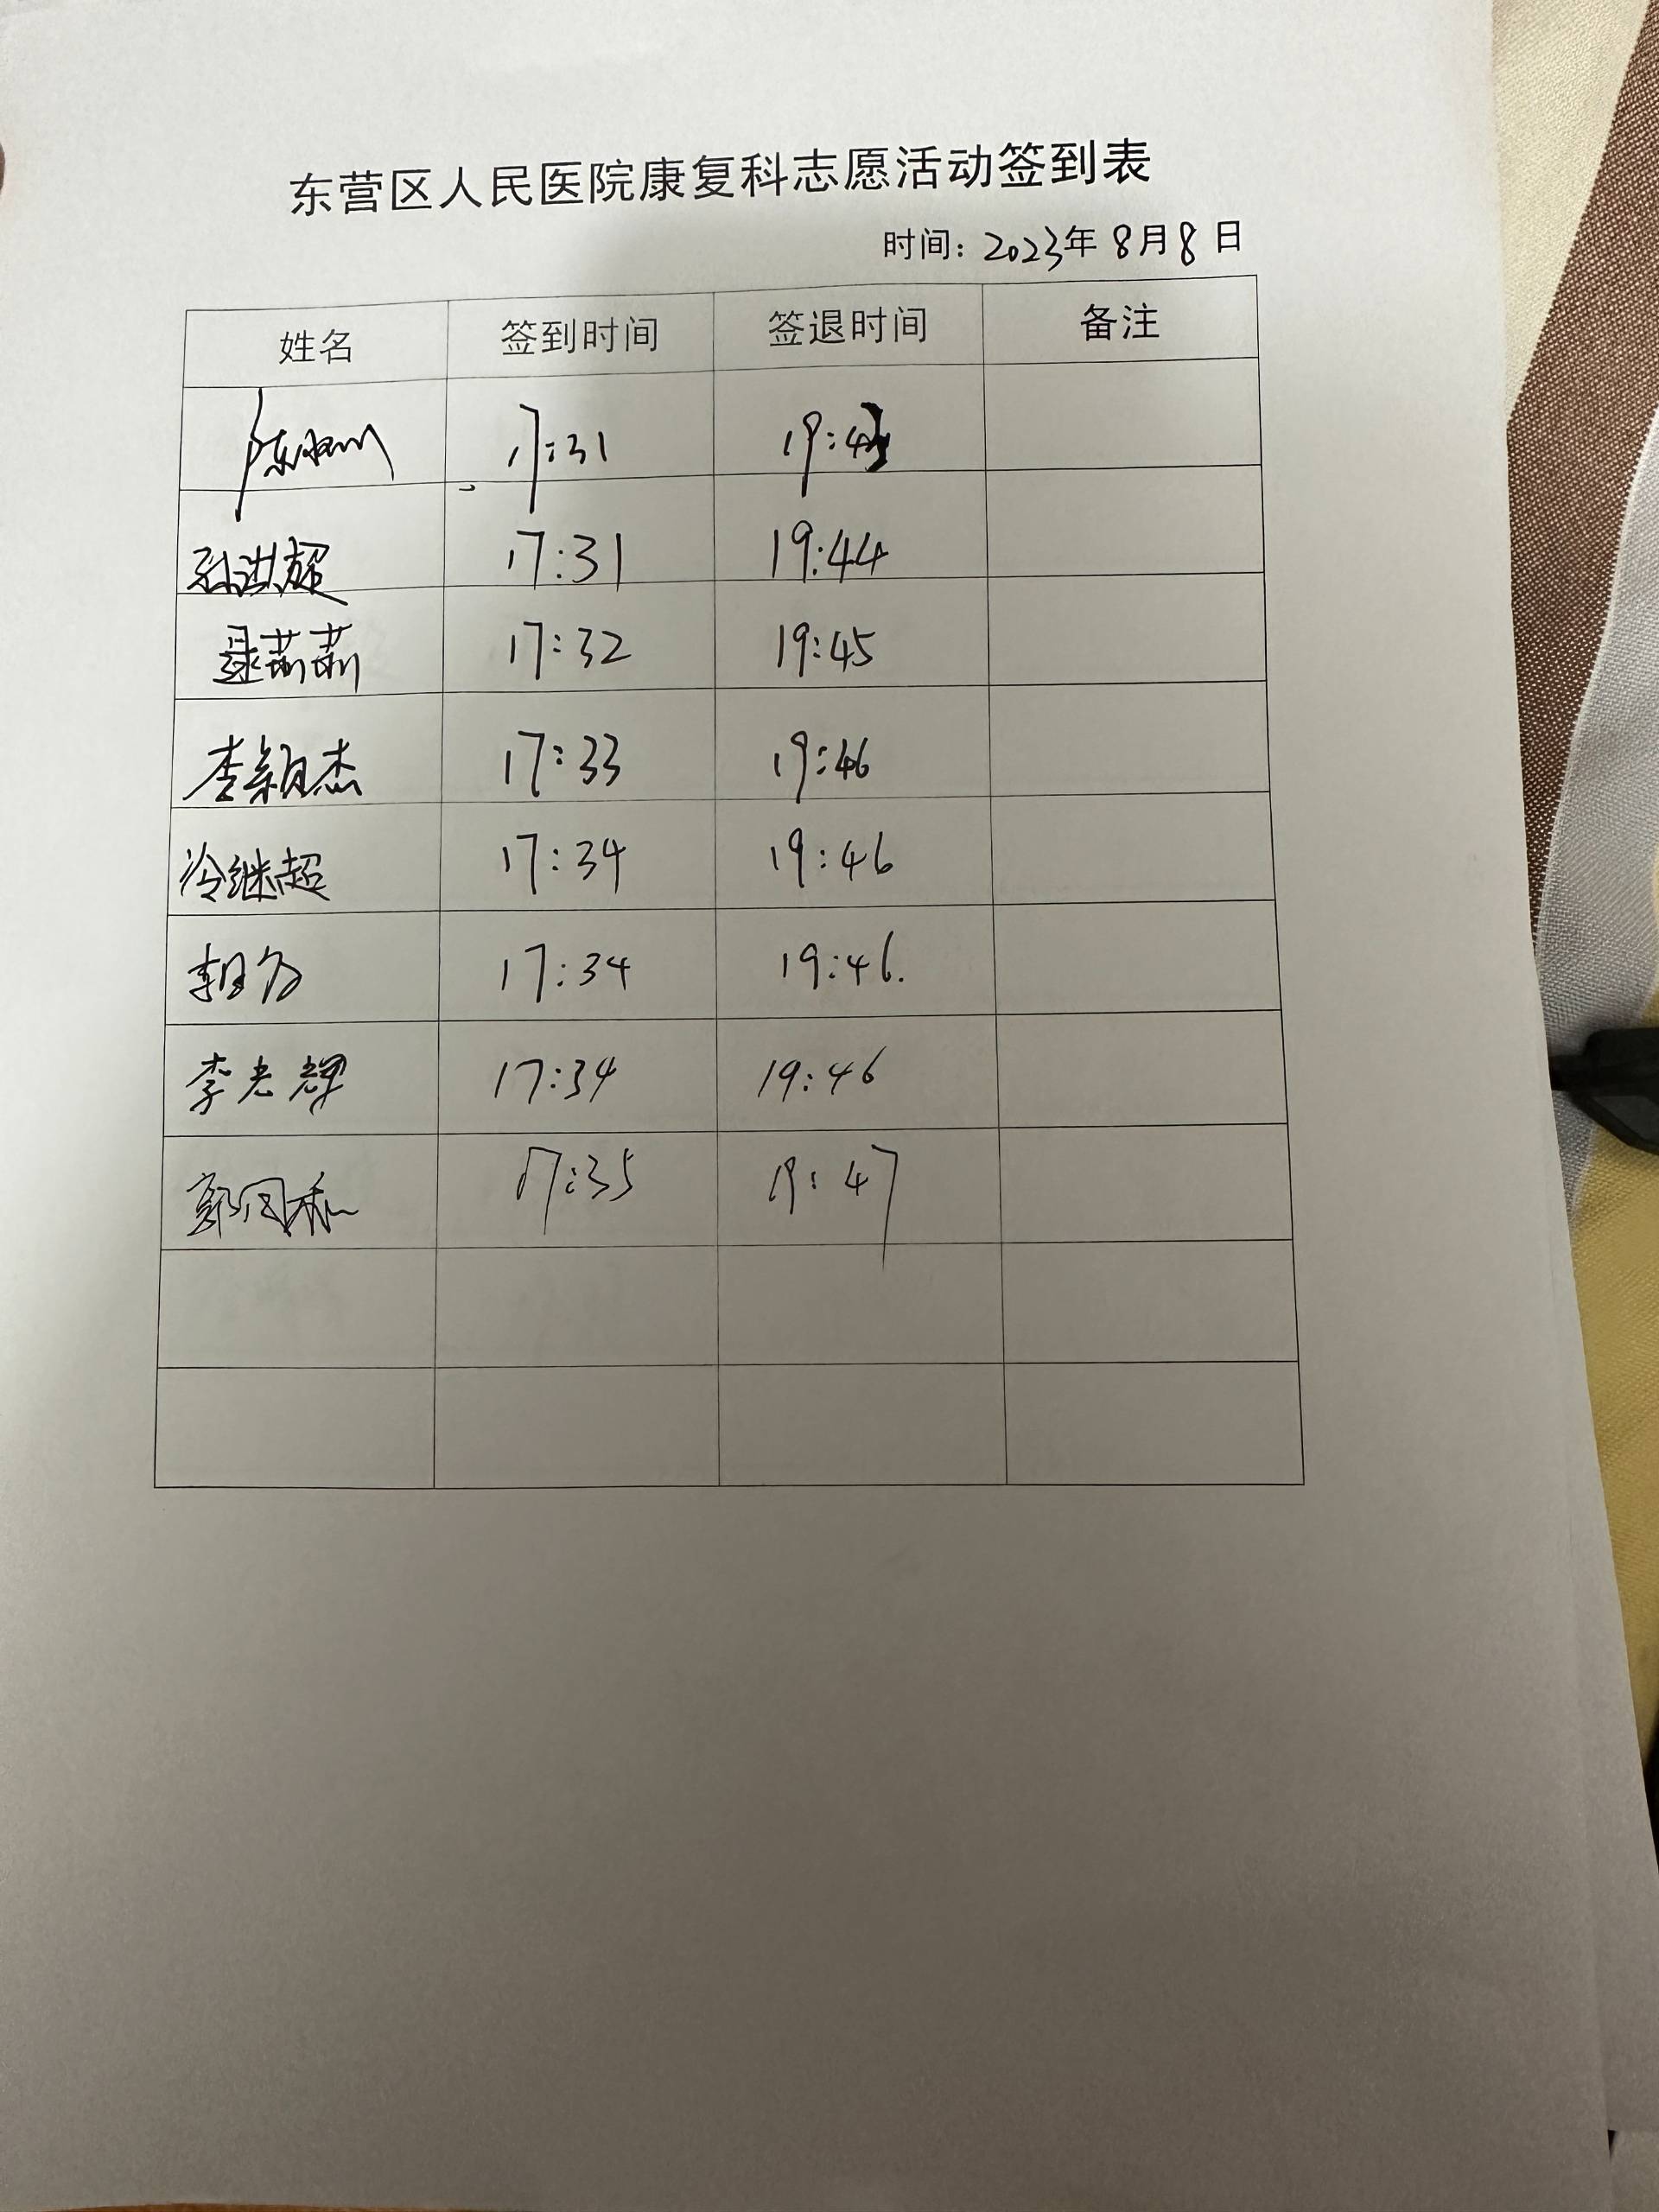 东营区人民医院康复科志愿活动签到表
时间：2023年8月8日
姓名 签到时间 签退时间 备注
陈 17:31 19:43
孙洪超 17:31 19:44
聂莉莉 17:32 19:45
李颖杰 17:33 19:46
冷继超 17:34 19:46
17:34 19:46.
李光辉 17:34 19:46
郭同和 17:35 19:47